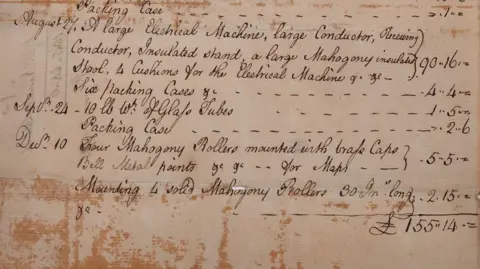 Packing Case - - - - - - - 1 "
August 27. A large Electrical Machine, large Conductor, Receiving
Conductor, Insulated stand, a large Mahogony insulated
Stool, 4 Cushions for the Electrical Machine &c &c - } 90 " 16 "
Six packing Cases &c - - - - - - 4 " 4 "
24 - 10 lb Wt. of Glass Tubes - - - - - 1 " 5 "
Packing Case - - - - - - " 2 " 6
Decr. 10 Four Mahogony Rollers mounted with brass Caps
Bell Metal points &c &c - - for Maps - - } 5 " 5 "
Mounting 4 solid Mahogony Rollers 30 Ins. long
&c - - - - - - - - - } 2 " 15 "
£ 155 " 14 "